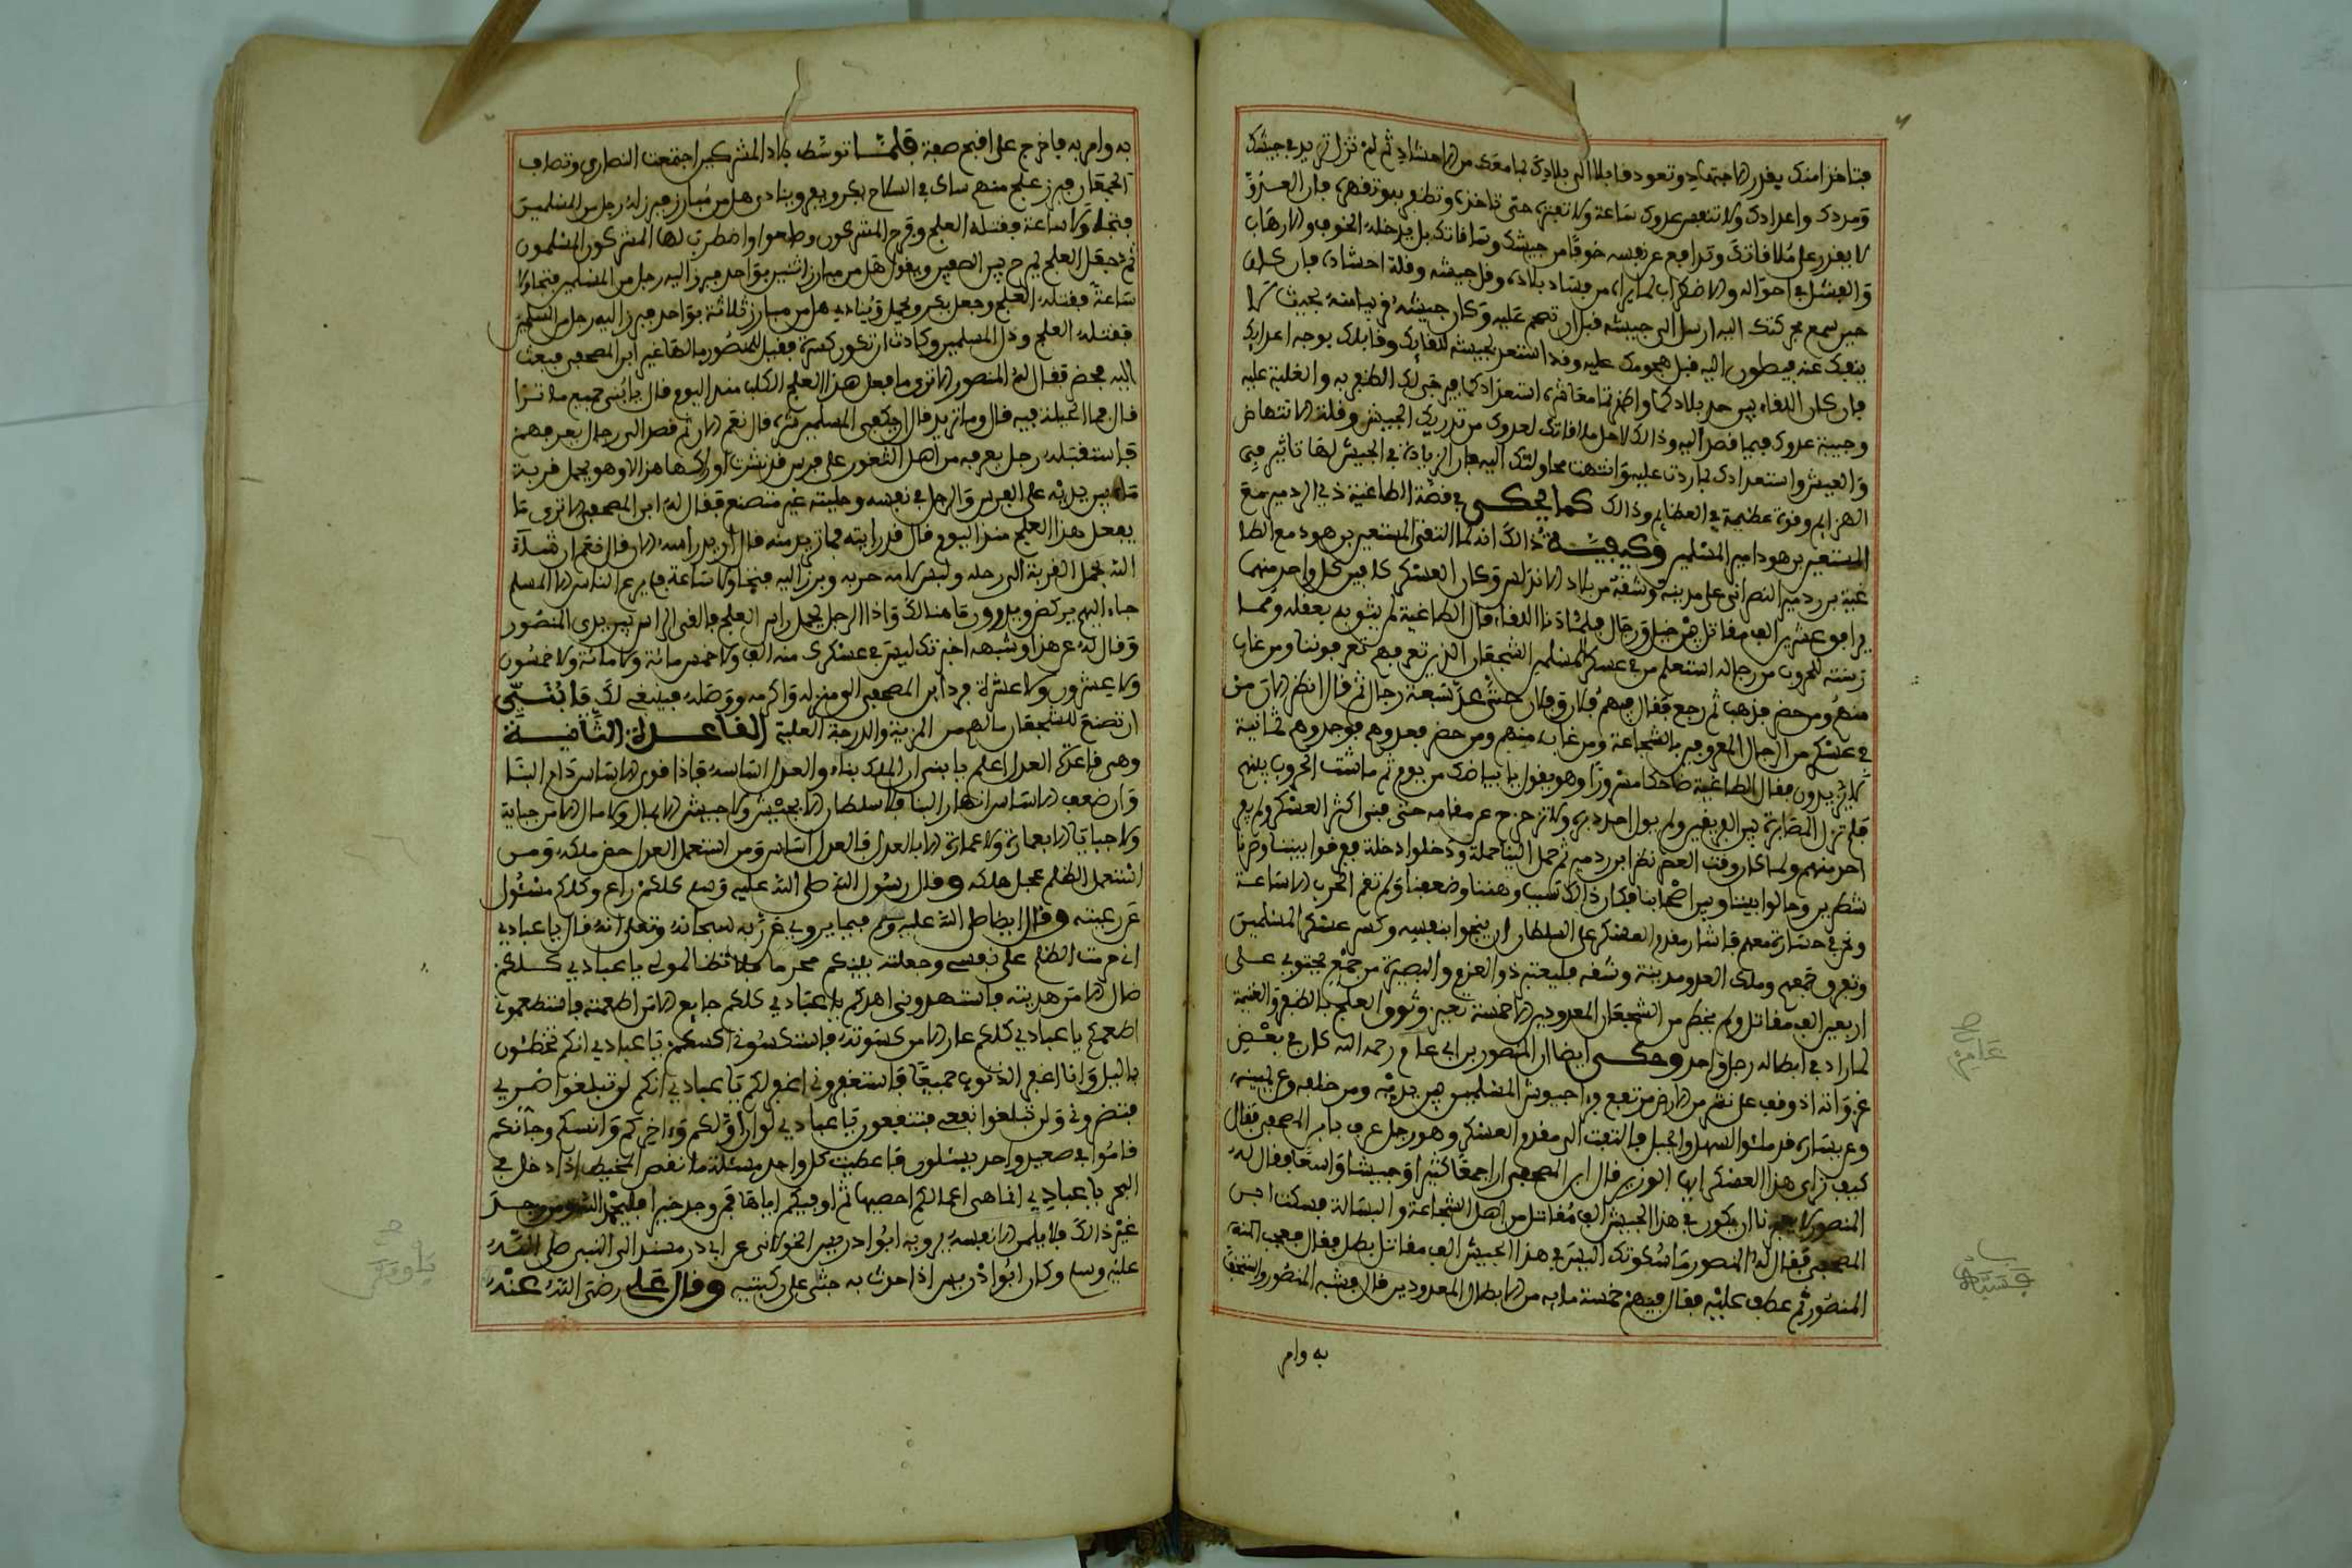 فتاخذ امنك بقدر الاجتهاد وتعود قابلا الى بلادك بما معك من الاحشاد ثم لم تزل تزيد في جيشك
وعددك واعدادك ولا تنقص عدوك ساعة ولا تغبن حتى تاخذه وتظفر به وتقهره فان العدو
لا يقدر على ملاقاتك وتدافع عن نفسه خوفا من جيشك وملاقاتك بل يدخله الخوف والارهاب
والفشل في احواله والاضطراب لما يراه من فساد بلاده وفل جيشه وقلة احشاده فان كان
حين سمع بحركتك اليه ارسل الى جيشه قبل ان تهجم عليه وكان جيشه قريبا منه بحيث لا
فيصلون اليه قبل هجومك عليه وقد استعد بجيشه للقايك وقابلك بوجه اعدايك
فان كان اللقاء بين حد بلادكما واظهرتما معا شدة استعدادكما فيرجى لك الظفر به والغلبة عليه
وخيبة عدوك فيما قصد اليه وذالك لاجل ملاقاتك لعدوك من تدريك الجيش وقلة الانتهاض
والجيش واستعدادك لما ردت عليه وانتهت محاولتك اليه فان الزيادة في الجيش لها تاثير في
الهزايم وقوة عظيمة في العظايم وذالك كما يحكى في قصة الطاغية ذي الردمير مع
المستعين بن هود امير المسلمين وكيفية ذالك انه لما التقى المستعين بن هود مع الطا
غية بن ردمير النصراني على مدينة وشقة من بلاد الاندلس وكان العسكر كل فيه كل واحد منهما
يزاهي عشرين الف مقاتل بين خيل ورجال فلما دنا اللقاء قال الطاغية لم يثق به بعقله وممارسته
للحروب من رجاله استعلم من في عسكر المسلمين الشجعان الذين تعرفهم كما يعرفوننا ومن غاب
منهم ومن حضر فذهب ثم رجع فقال فيهم فلان وفلان حتى عد سبعة رجال ثم قال انظر الان من
في عسكري من الرجال المعروفين بالشجاعة ومن غاب منهم ومن حضر فعدوهم فوجدوهم ثمانية
لا يزيدون فقال الطاغية ضاحكا مسرورا وهو يقول يا بياضك من يوم ثم ناشت الحروب بينهم
فلم تزل المصابرة بين الفريقين ولم يول احد دبره ولا تزحزح عن مقامه حتى فنى اكثر العسكر ولم يفر
احد منهم ولما كان وقت العصر نظر ابن ردمير ثم حمل الينا حملة ودخلوا دخلة ففرقوا بيننا وصرنا
شطرين وحالوا بيننا وبين اصحابنا فكان ذالك سبب وهننا وضعفنا ولم تقم الحرب الا ساعة
ونحن في خسارة معهم فاشار مقدم العسكر على السلطان ان ينجوا بنفسه وكسر عسكر المسلمين
وتفرق جمعهم وملك العدو مدينة وشقة فليعتبر ذو العزم والبصيرة من جمع يحتوي على
اربعين الف مقاتل ولم يحضر من الشجعان المعدودين الا خمسة عشر وثقوا العلج بالظفر والغنيمة
لما زاد في ابطاله رجل واحد وحكى ايضا ان المنصور بن ابي عامر رحمه الله كان في بعض
غزواته اذ وقف على نشز من الارض مرتفع فراى جيوش المسلمين بين يديه ومن خلفه وعن يمينه
وعن يساره قد ملئوا السهل والجبل فالتفت الى مقدم العسكر وهو رجل عرف بابن المصحفي فقال
كيف ترى هذا العسكر ايها الوزير قال ابن المصحفي ارى جمعا كثيرا وجيشا واسعا فقال له
المنصور لا يعجزنا ان يكون في هذا الجيش الف مقاتل من اهل الشجاعة والبسالة فسكت ابن
المصحفي فقال له المنصور ما سكوتك اليس في هذا الجيش الف مقاتل بطل فقال فعجب المنصور
المنصور ثم عطف عليه فقال فيهم خمسة مايه من الابطال المعدودين قال فشبه المنصور واستخف
به وامر
به وامر به فاخرج على اقبح صفة فلما توسط بلاد المشركين اجتمعت النصارى وتصاف
الجمعان فبرز علج منهم شاك في السلاح يكر ويفر وينادي هل من مبارز فبرز له رجل من المسلمين
فتجاولا ساعة فقتله العلج وفرح المشركون وصاحوا واضطرب لها المشركون المسلمون
ثم جعل العلج يمرح بين الصفين ويقول هل من مبارز اثنين بواحد فبرز اليه رجل من المسلمين فتجاولا
ساعة فقتله العلج وجعل يكر ويحمل وينادي هل من مبارز ثلاثة بواحد فبرز اليه رجل من المسلمين
فقتله العلج وذل المسلمين وكادت ان تكون كسرة فقيل للمنصور ما لها غير ابن المصحفي فبعث
اليه فحضر فقال له المنصور الا ترى ما فعل هذا العلج الكلب منذ اليوم قال يا بني جميع ما ترا
قال فما الحيلة فيه قال وما تريد قال ان يكفي المسلمين شره قال نعم الان ثم قصد الى رجال يعرفهم
فاستقبله رجل يعرفه من اهل الثغور على فرس قد نشرت اوراكها هزالا وهو يحمل قربة
ماء بين يديه على الفرس والرجل في نفسه وحليته غير متصنع فقال له ابن المصحفي الا ترى ما
يفعل هذا العلج منذ اليوم قال قد رايته فما تريد منه قال اريد راسه الان قال نعم ان شاء
الله فحمل القربة الى رحله ولبس لامة حربه وبرز اليه فتجاولا ساعة فلم ير الناس الا المسلم
جاء اليهم يركض ويدرون ما هنالك واذا الرجل يحمل راس العلج فالقى الراس بين يدي المنصور
وقال له عن هذا وشبهه اخبرتك ليس في عسكرك منه الف ولا خمس مائة ولا مائة ولا خمسون
ولا عشرون ولا عشرة فرد ابن المصحفي الى منزله واكرمه ووصله فينبغي لك يا بني
ان تصنع للشجعان ما لهم من المزية والدرجة العلية القاعدة الثانية
وهي قاعدة العدل اعلم يا بني ان الملك بناء والعدل اساسه فاذا قوي الاساس دام البنا
وان ضعف الاساس انهار البنا فلا سلطان الا بجيش ولا جيش الا بمال ولا مال الا من جباية
ولا جباية الا بعمارة ولا عمارة الا بالعدل فالعدل اساس ومن استعمل العدل حصن ملكه ومن
استعمل الظلم عجل هلكه وقال رسول الله صلى الله عليه وسلم كلكم راع وكلكم مسئول
عن رعيته وقال ايضا صلى الله عليه وسلم فيما يرويه عن ربه سبحانه وتعلى انه قال يا عبادي
اني حرمت الظلم على نفسي وجعلته بينكم محرما فلا تظالموا يا عبادي كلكم
ضال الا من هديته فاستهدوني اهدكم يا عبادي كلكم جايع الا من اطعمته فاستطعموني
اطعمكم يا عبادي كلكم عار الا من كسوته فاستكسوني اكسكم يا عبادي انكم تخطئون
بالليل وانا اغفر الذنوب جميعا فاستغفروني اغفر لكم يا عبادي انكم لن تبلغوا ضري
فتضروني ولن تبلغوا نفعي فتنفعون يا عبادي لو ان اولكم وءاخركم وانسكم وجانكم
قاموا في صعيد واحد يسئلون فاعطيت كل واحد مسئلته ما نقص الخيط اذا دخل في
البحر يا عبادي انما هي اعمالكم احصيها ثم اوفيكم اياها فمن وجد خيرا فليحمد الله ومن وجد
غير ذالك فلا يلمن الا نفسه يرويه ابوا ادريس الخولاني عن ابي ذر مسند الى النبي صلى الله
عليه وسلم وكان ابوا ادريس اذا حدث به جثى على ركبتيه وقال علي رضي الله عنه